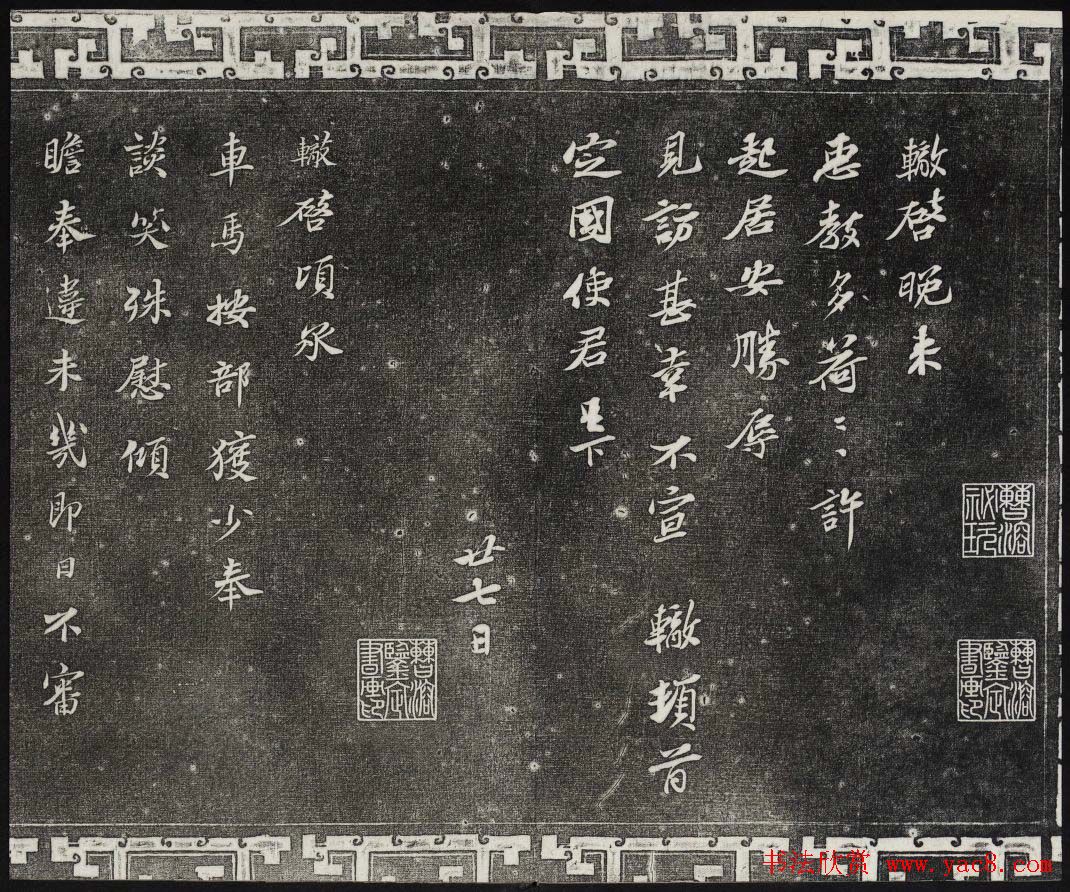 轍啓晚来
惠教多荷〻許
起居安勝辱
見訪甚幸不宣 轍頓首
定國使君足下
廿七日
轍啓頃承
車馬按部獲少奉
談笑殊慰傾
瞻奉違未幾即日不審
曹溶祕玩
曹溶鑒定書畫印
曹溶鑒定書畫印
书法欣赏 www.yac8.com